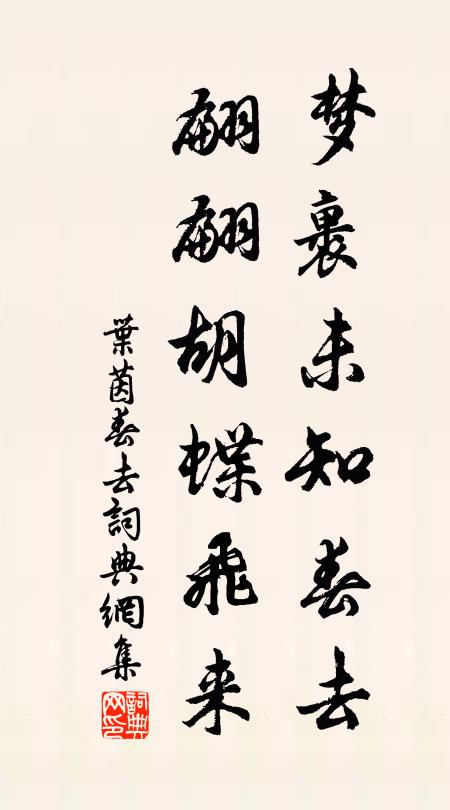 梦裹未知春去
翩翩胡蝶飛来
葉茵春去詞典網集
詞典网印